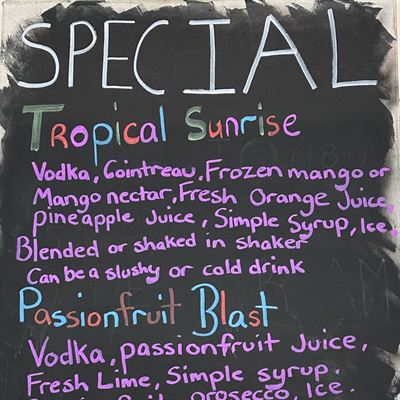 SPECIAL
Tropical Sunrise
Vodka, Cointreau, Frozen mango or
Mango nectar, Fresh Orange Juice,
Pineapple Juice, Simple Syrup, Ice.
Blended or shaked in shaker
Can be a slushy or cold drink
Passionfruit Blast
Vodka, passionfruit Juice,
Fresh Lime, Simple syrup.
prosecco, Ice.